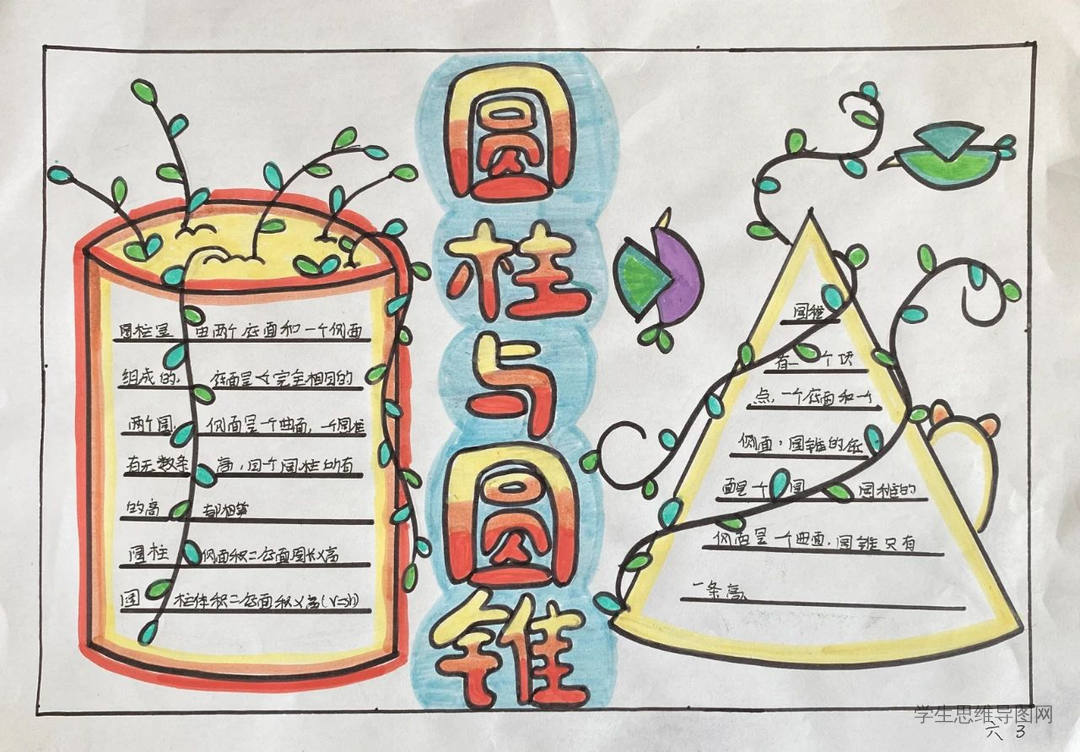 圆柱与圆锥
圆柱是由两个底面和一个侧面
组成的,底面是两个完全相同的
两个圆,侧面是一个曲面,一个圆柱
有无数条高,同个圆柱的所有
的高都相等
圆柱侧面积=底面周长×高
圆柱体积=底面积×高(V=sh)
圆锥
有一个顶
点,一个底面和一个
侧面,圆锥的底
面是个圆
侧面是一个曲面,圆锥只有
一条高。
学生思维导图网
六 3